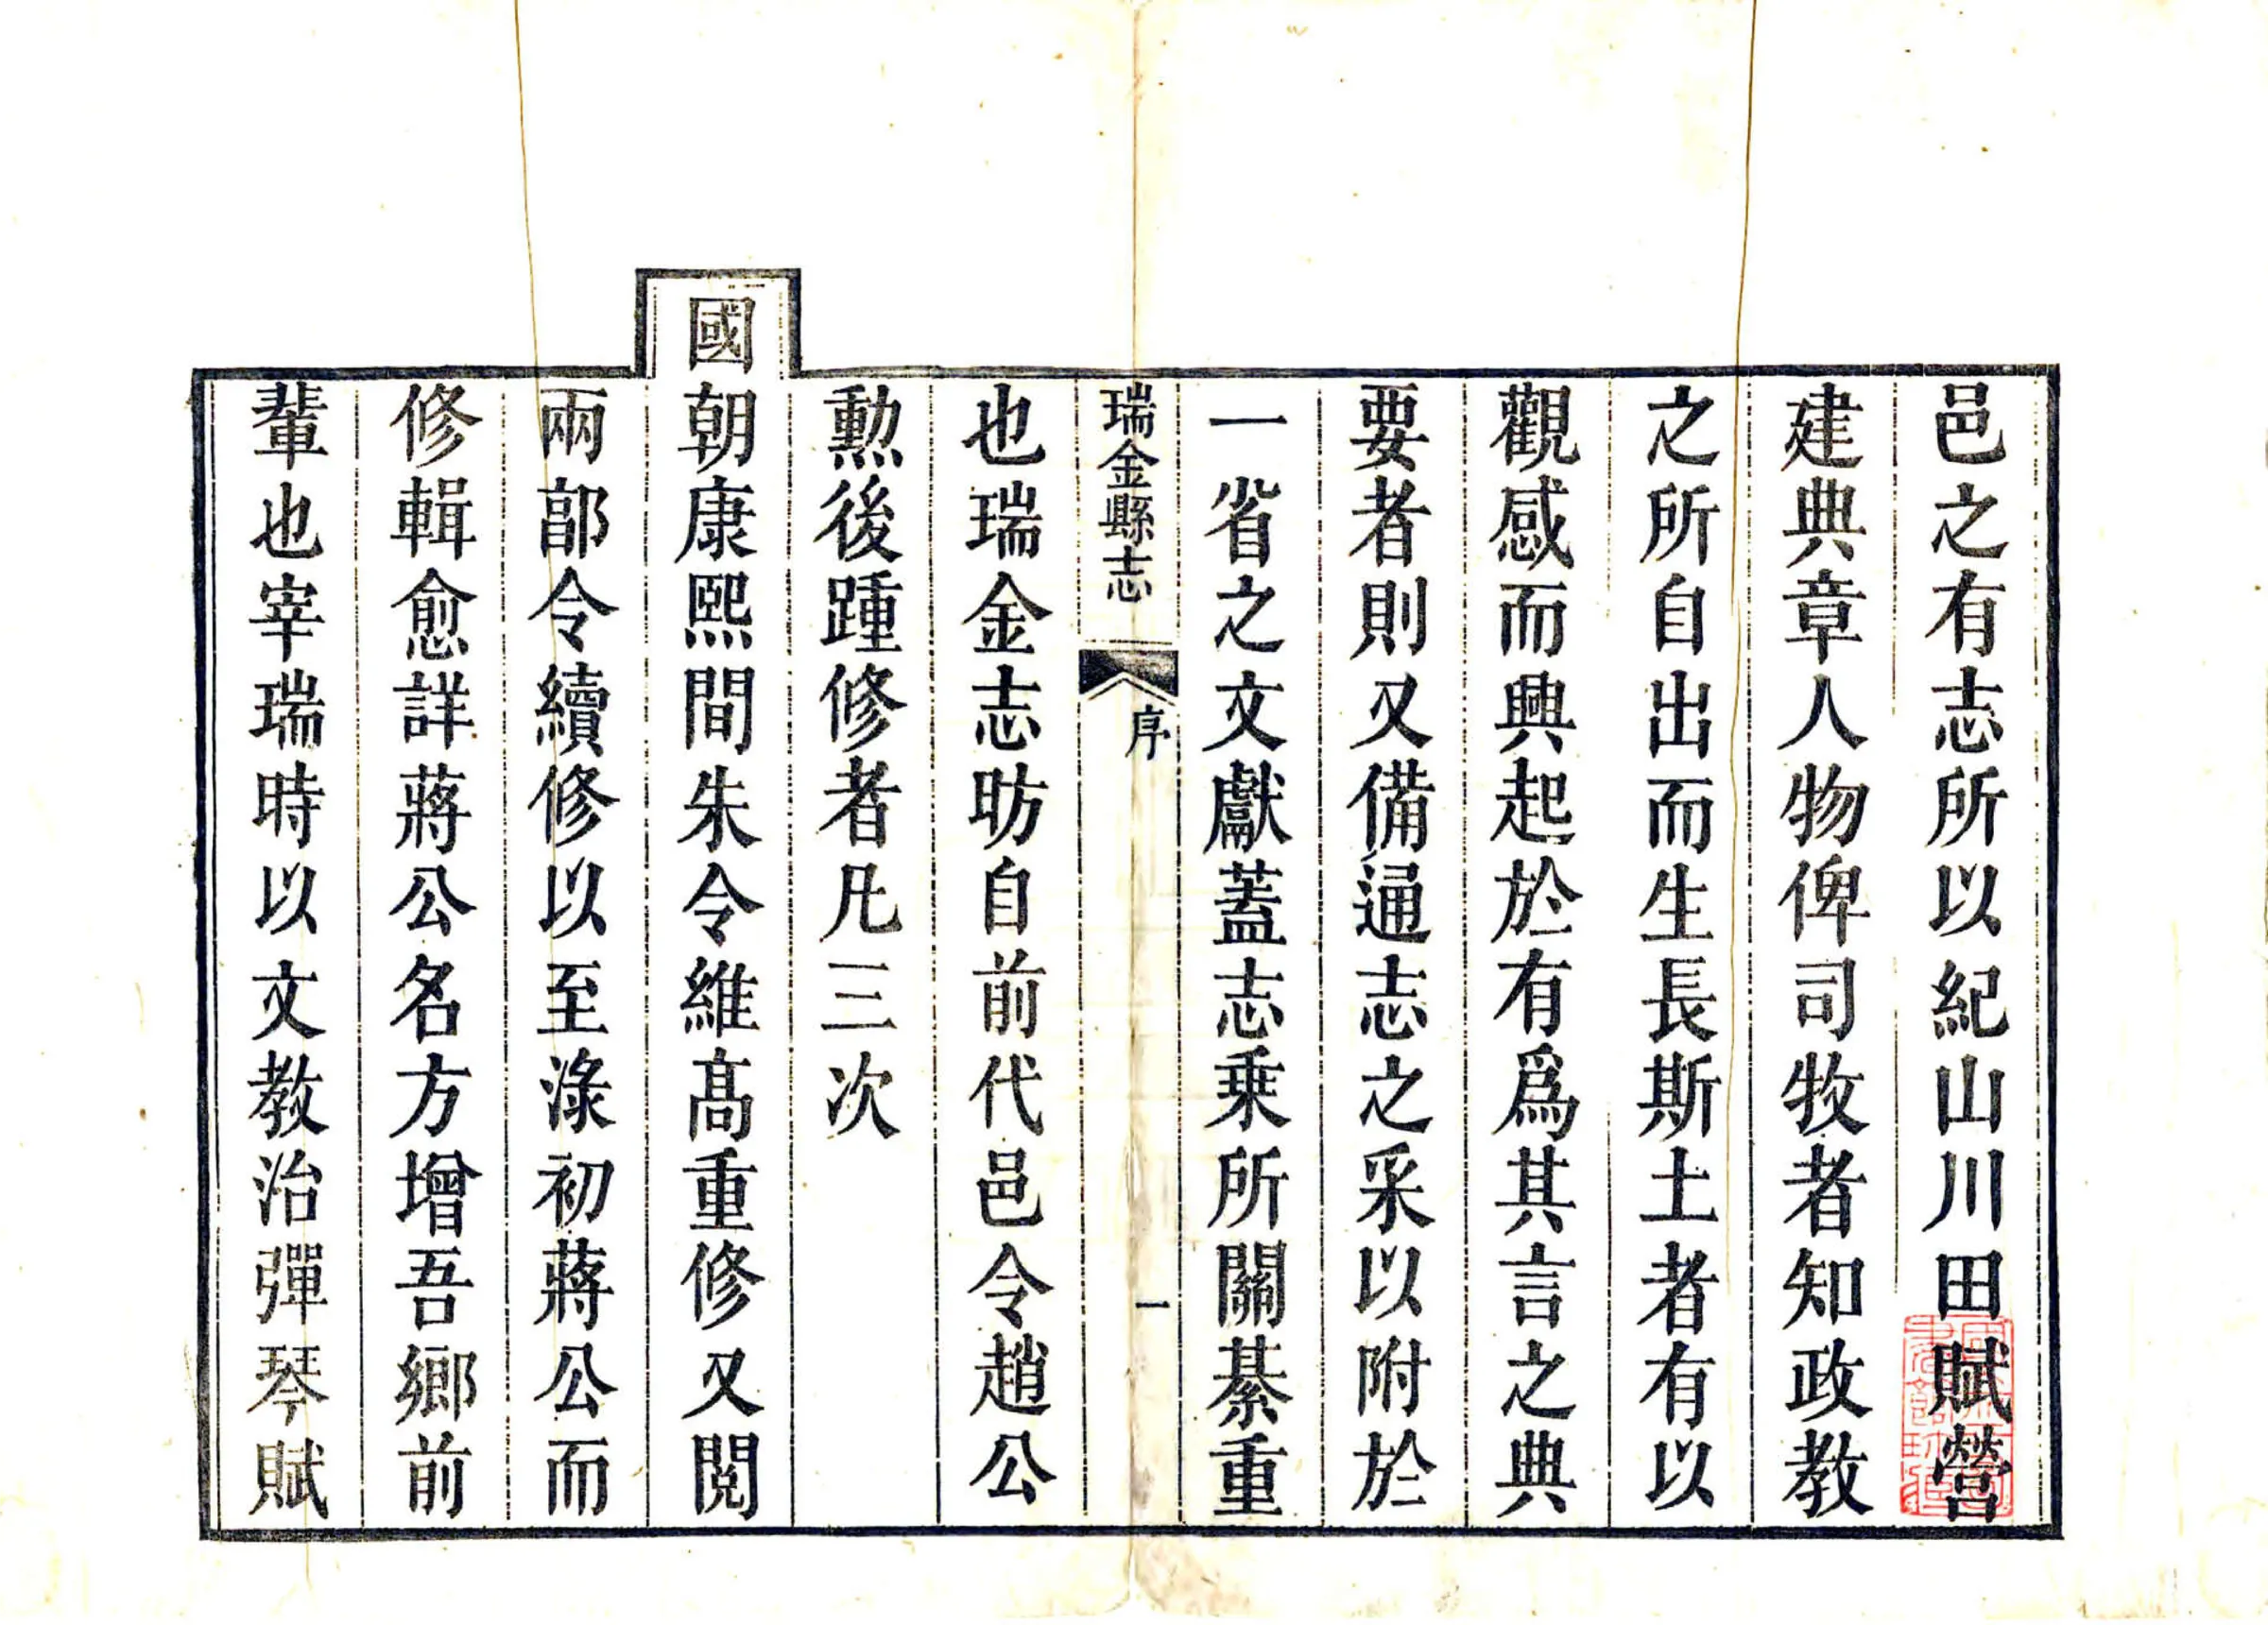 邑之有志所以紀山川田賦營
建典章人物俾司牧者知政教
之所自出而生長斯土者有以
觀感而興起於有爲其言之典
要者則又備通志之采以附於
一省之文獻蓋志乗所關綦重
瑞金縣志 序 一
也瑞金志昉自前代邑令趙公
勲後踵修者凡三次
國朝康熙間朱令維髙重修又閱
兩郭令續修以至淥初蔣公而
修輯愈詳蔣公名方增吾鄉前
輩也宰瑞時以文教治彈琴賦